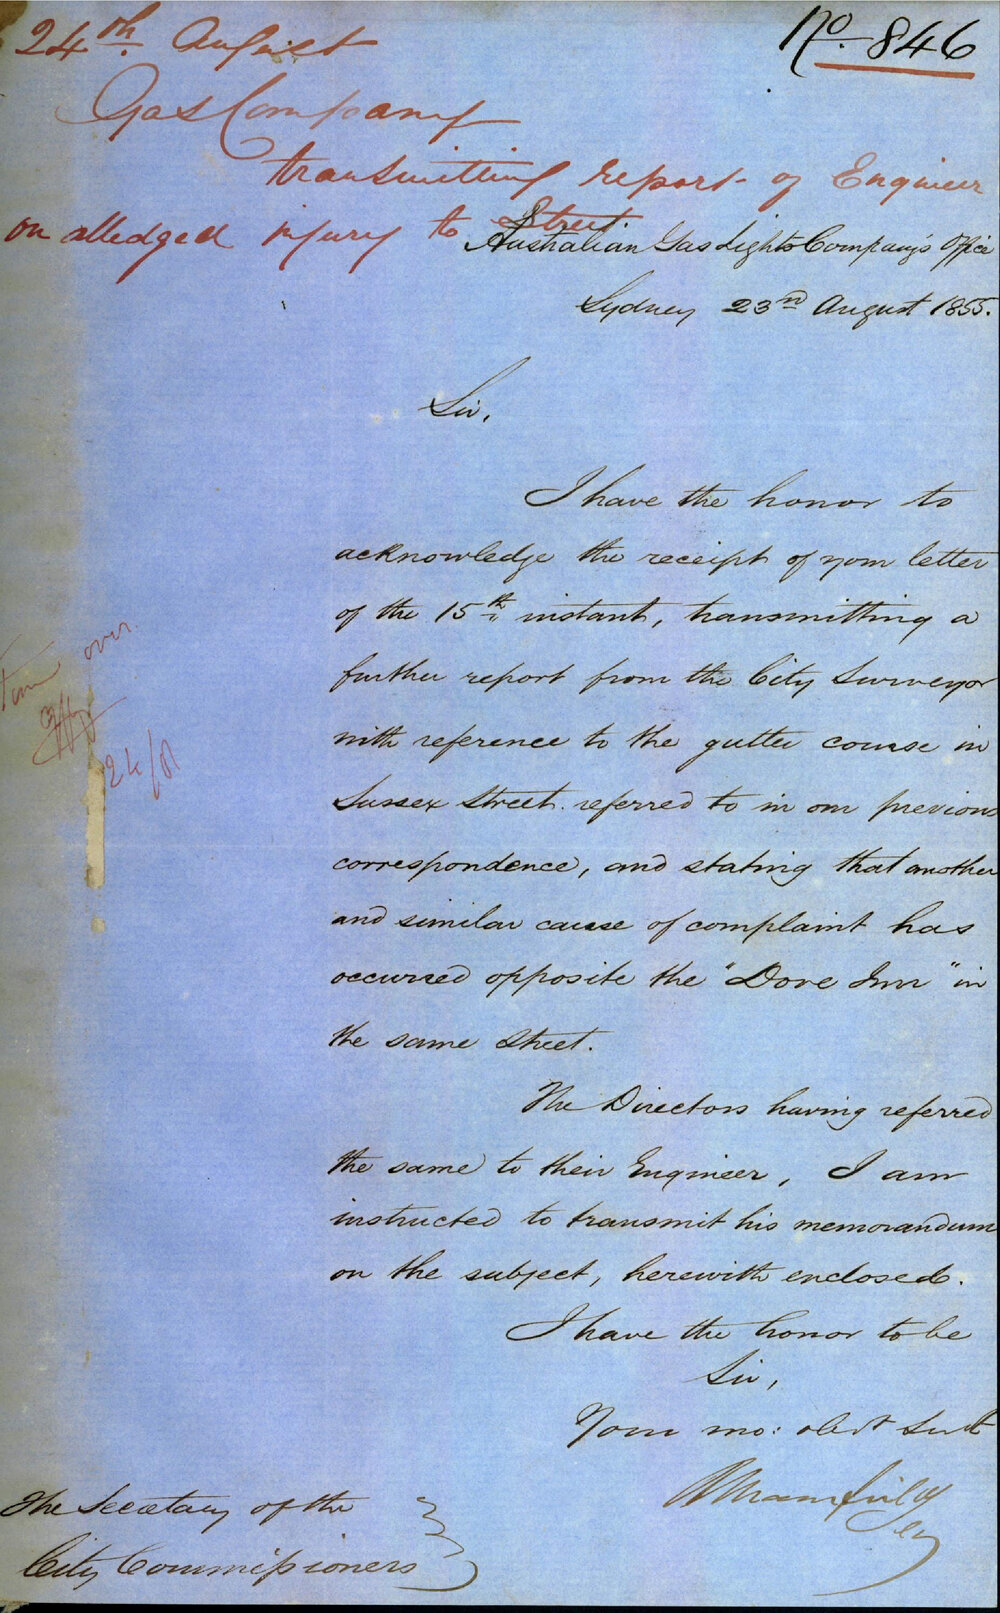 No. 846
24th August
Gas Company
transmitting report of Engineer
on alledged injury to Street
Australian Gas Light Company's Office
Sydney 23rd August 1855.
Sir,
I have the honor to
acknowledge the receipt of your letter
of the 15th instant, transmitting a
further report from the City Surveyor
with reference to the gutter course in
Sussex Street referred to in our previous
correspondence, and stating that another
and similar cause of complaint has
occurred opposite the "Dove Inn" in
the same street.
The Directors having referred
the same to their Engineer, I am
instructed to transmit his memorandum
on the subject, herewith enclosed.
I have the honor to be
Sir,
Your mo: obedt Servt
RMansfield
Sey
The Secretary of the
City Commissioners
Turn over
24/8